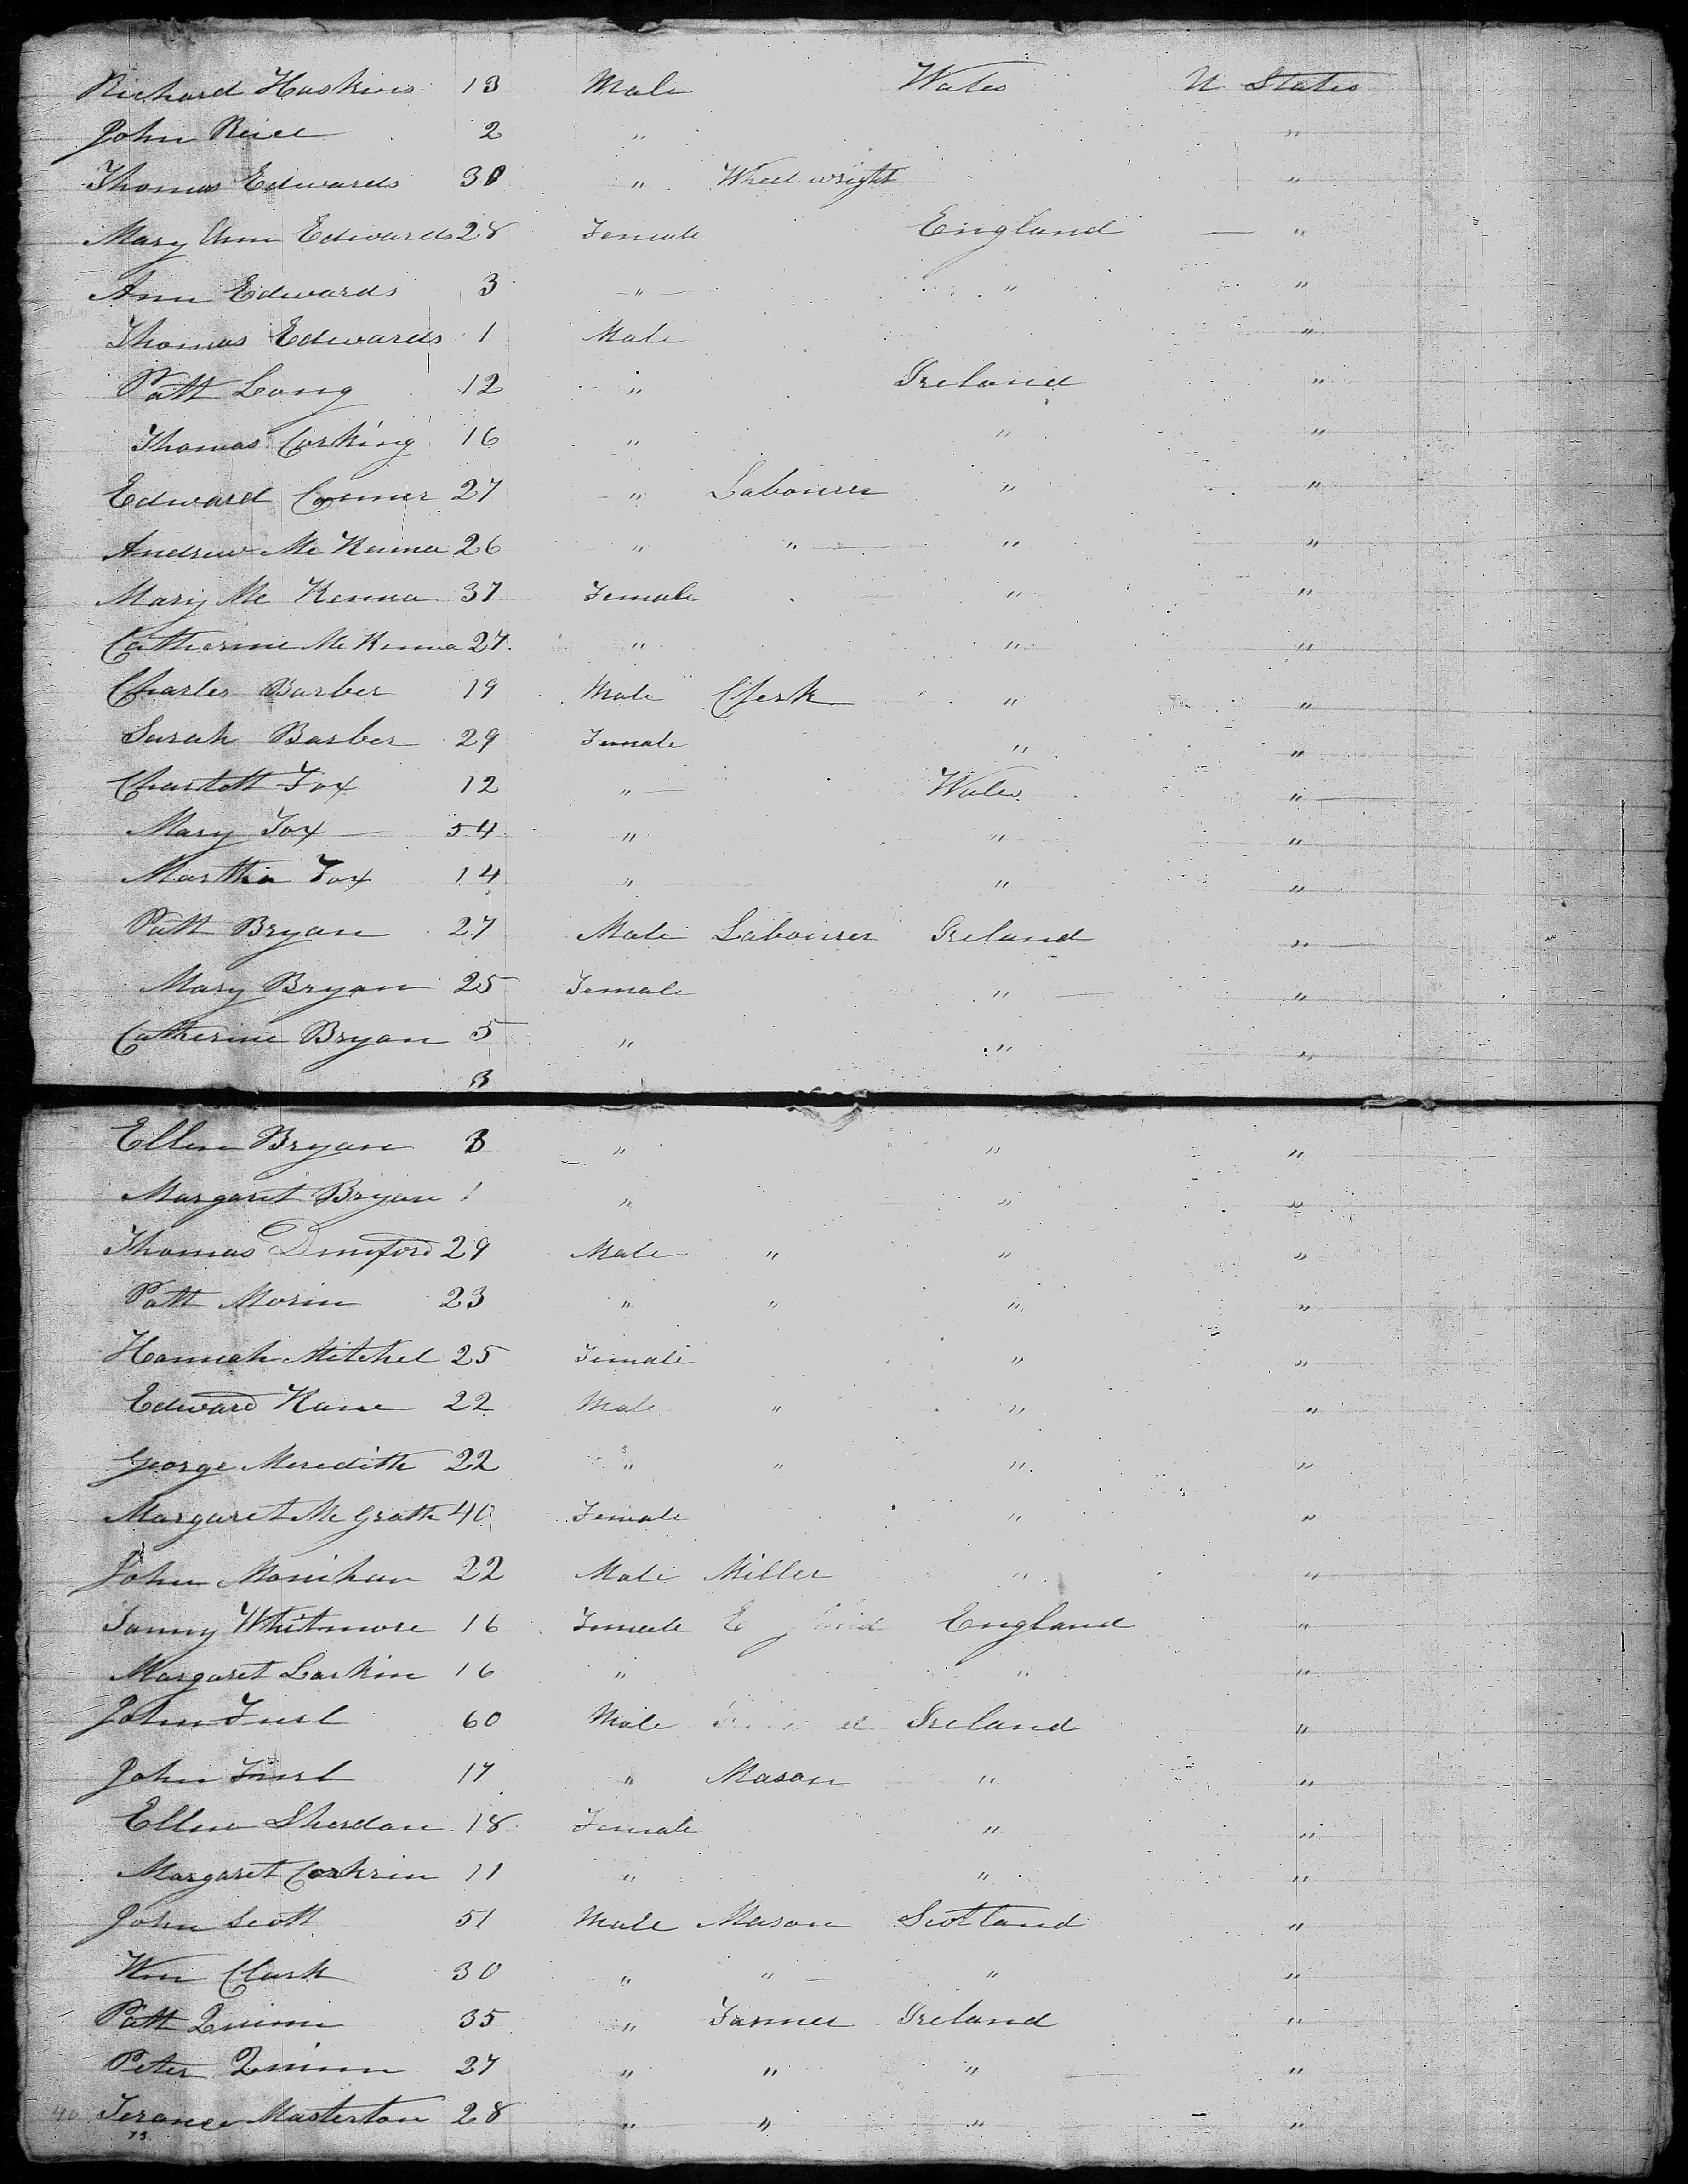 Richard Hoskins 13 Male Wales U States
John Rice 2 " "
Thomas Edwards 30 " Wheelwright "
Mary Ann Edwards 28 Female England — "
Ann Edwards 3 " " "
Thomas Edwards 1 Male "
Patt Long 12 " Ireland "
Thomas Corking 16 " " "
Edward Conner 27 " Labourer " "
Andrew Mc Kenna 26 " " " "
Mary Mc Kenna 37 Female " "
Catherine Mc Kenna 27 " " "
Charles Barber 19 Male Clerk " "
Sarah Barber 29 Female " "
Charlott Fox 12 " Wales "
Mary Fox 54 " " "
Martha Fox 14 " " "
Patt Bryan 27 Male Labourer Ireland "
Mary Bryan 25 Female " "
Catherine Bryan 5 " " "
3
Ellen Bryan 3 " " "
Margaret Bryan 1 " " "
Thomas Dunford 29 Male " " "
Patt Morin 23 " " " "
Hannah Mitchel 25 Female " "
Edward Kane 22 Male " " "
George Meredith 22 " " " "
Margaret Mc Grath 40 Female " "
John Monihan 22 Male Miller " "
Fanny Whitmore 16 Female England "
Margaret Larkin 16 " " "
John 60 Male Ireland "
John 17 " Mason " "
Ellen Sherdan 18 Female " "
Margaret Corkrin 11 " " "
John Scott 51 Male Mason Scotland "
Wm Clark 30 " " " "
Patt Quinn 35 " Farmer Ireland "
Peter Quinn 27 " " " "
40 Terance Masterton 28 " " " "